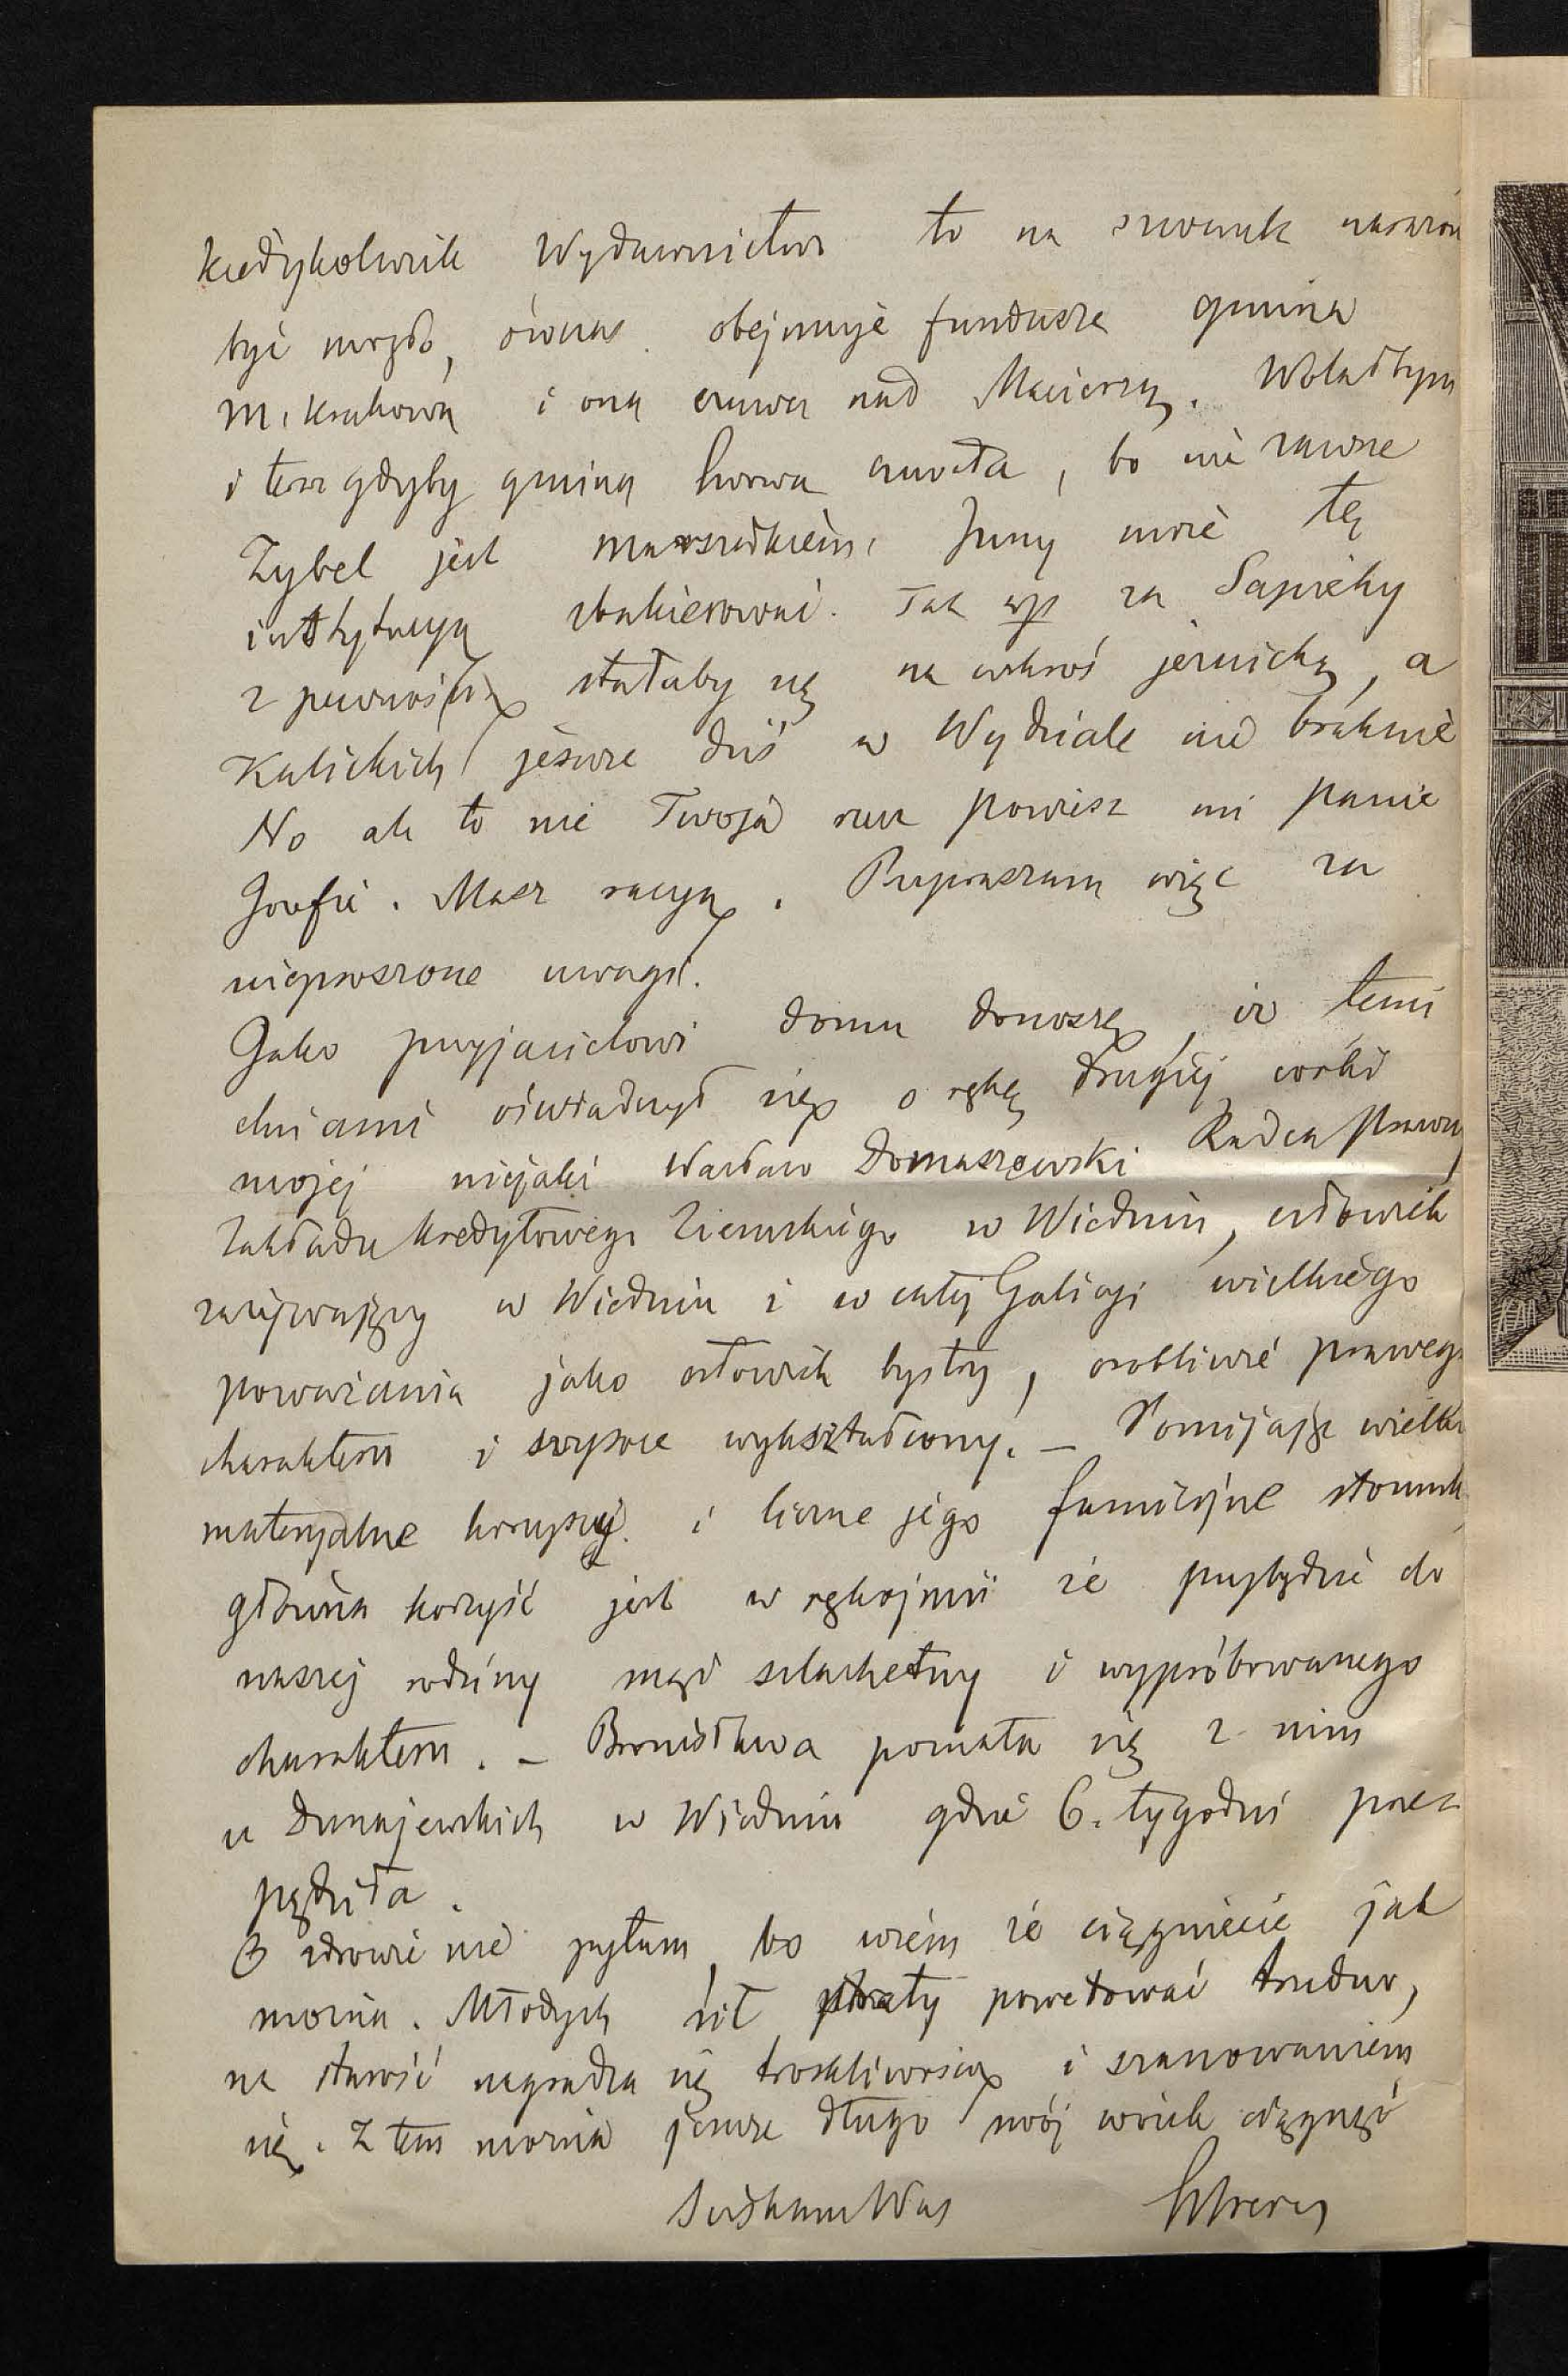 kiedykolwiek Wydawnictwo to na szwank narażone
być mogło, ówczas obejmuje fundusze gmina
m. Krakowa i ona czuwa nad Macierzą. Wolałbym
i teraz gdyby gmina Lwowa czuwała, bo nie zawsze
Zybel jest marszałkiem. Inny może tę
instytucyą zbakierować. Tak np za Sapiehy
z pewnością stałaby się na wskroś jezuicką, a
Kalickich jeszcze dziś w Wydziale nie braknie
No ale to nie Twoja rzecz powiesz mi panie
Grafie. Masz racyą. Przepraszam więc za
nieproszone uwagi.
Jako przyjacielowi domu donoszę, iż temi
dniami oświadczył się o rękę drugiej córki
mojej niejaki Wacław Domaszewski Radca prawny
Zakładu kredytowego Ziemskiego w Wiedniu, człowiek
zażywający w Wiedniu i w całej Galicyi wielkiego
poważania jako człowiek bystry, osobliwie prawego
charakteru i wysoce wykształcony. – Pomijając wielkie
materyalne korzyści i liczne jego familijne stosunki
główna korzyść jest w rękojmii że przybędzie do
naszej rodziny mąż szlachetny i wypróbowanego
charakteru. – Bronisława poznała się z nim
u Dunajewskich w Wiedniu gdzie 6. tygodni prze
pędziła.
O zdrowie nie pytam, bo wiem że ciągniecie jak
można. Młodych sił straty powetować trudno,
na starość nagradza się troskliwością i szanowaniem
się. Z tem można jeszcze długo swój wózek ciągnąć
Ściskam Was